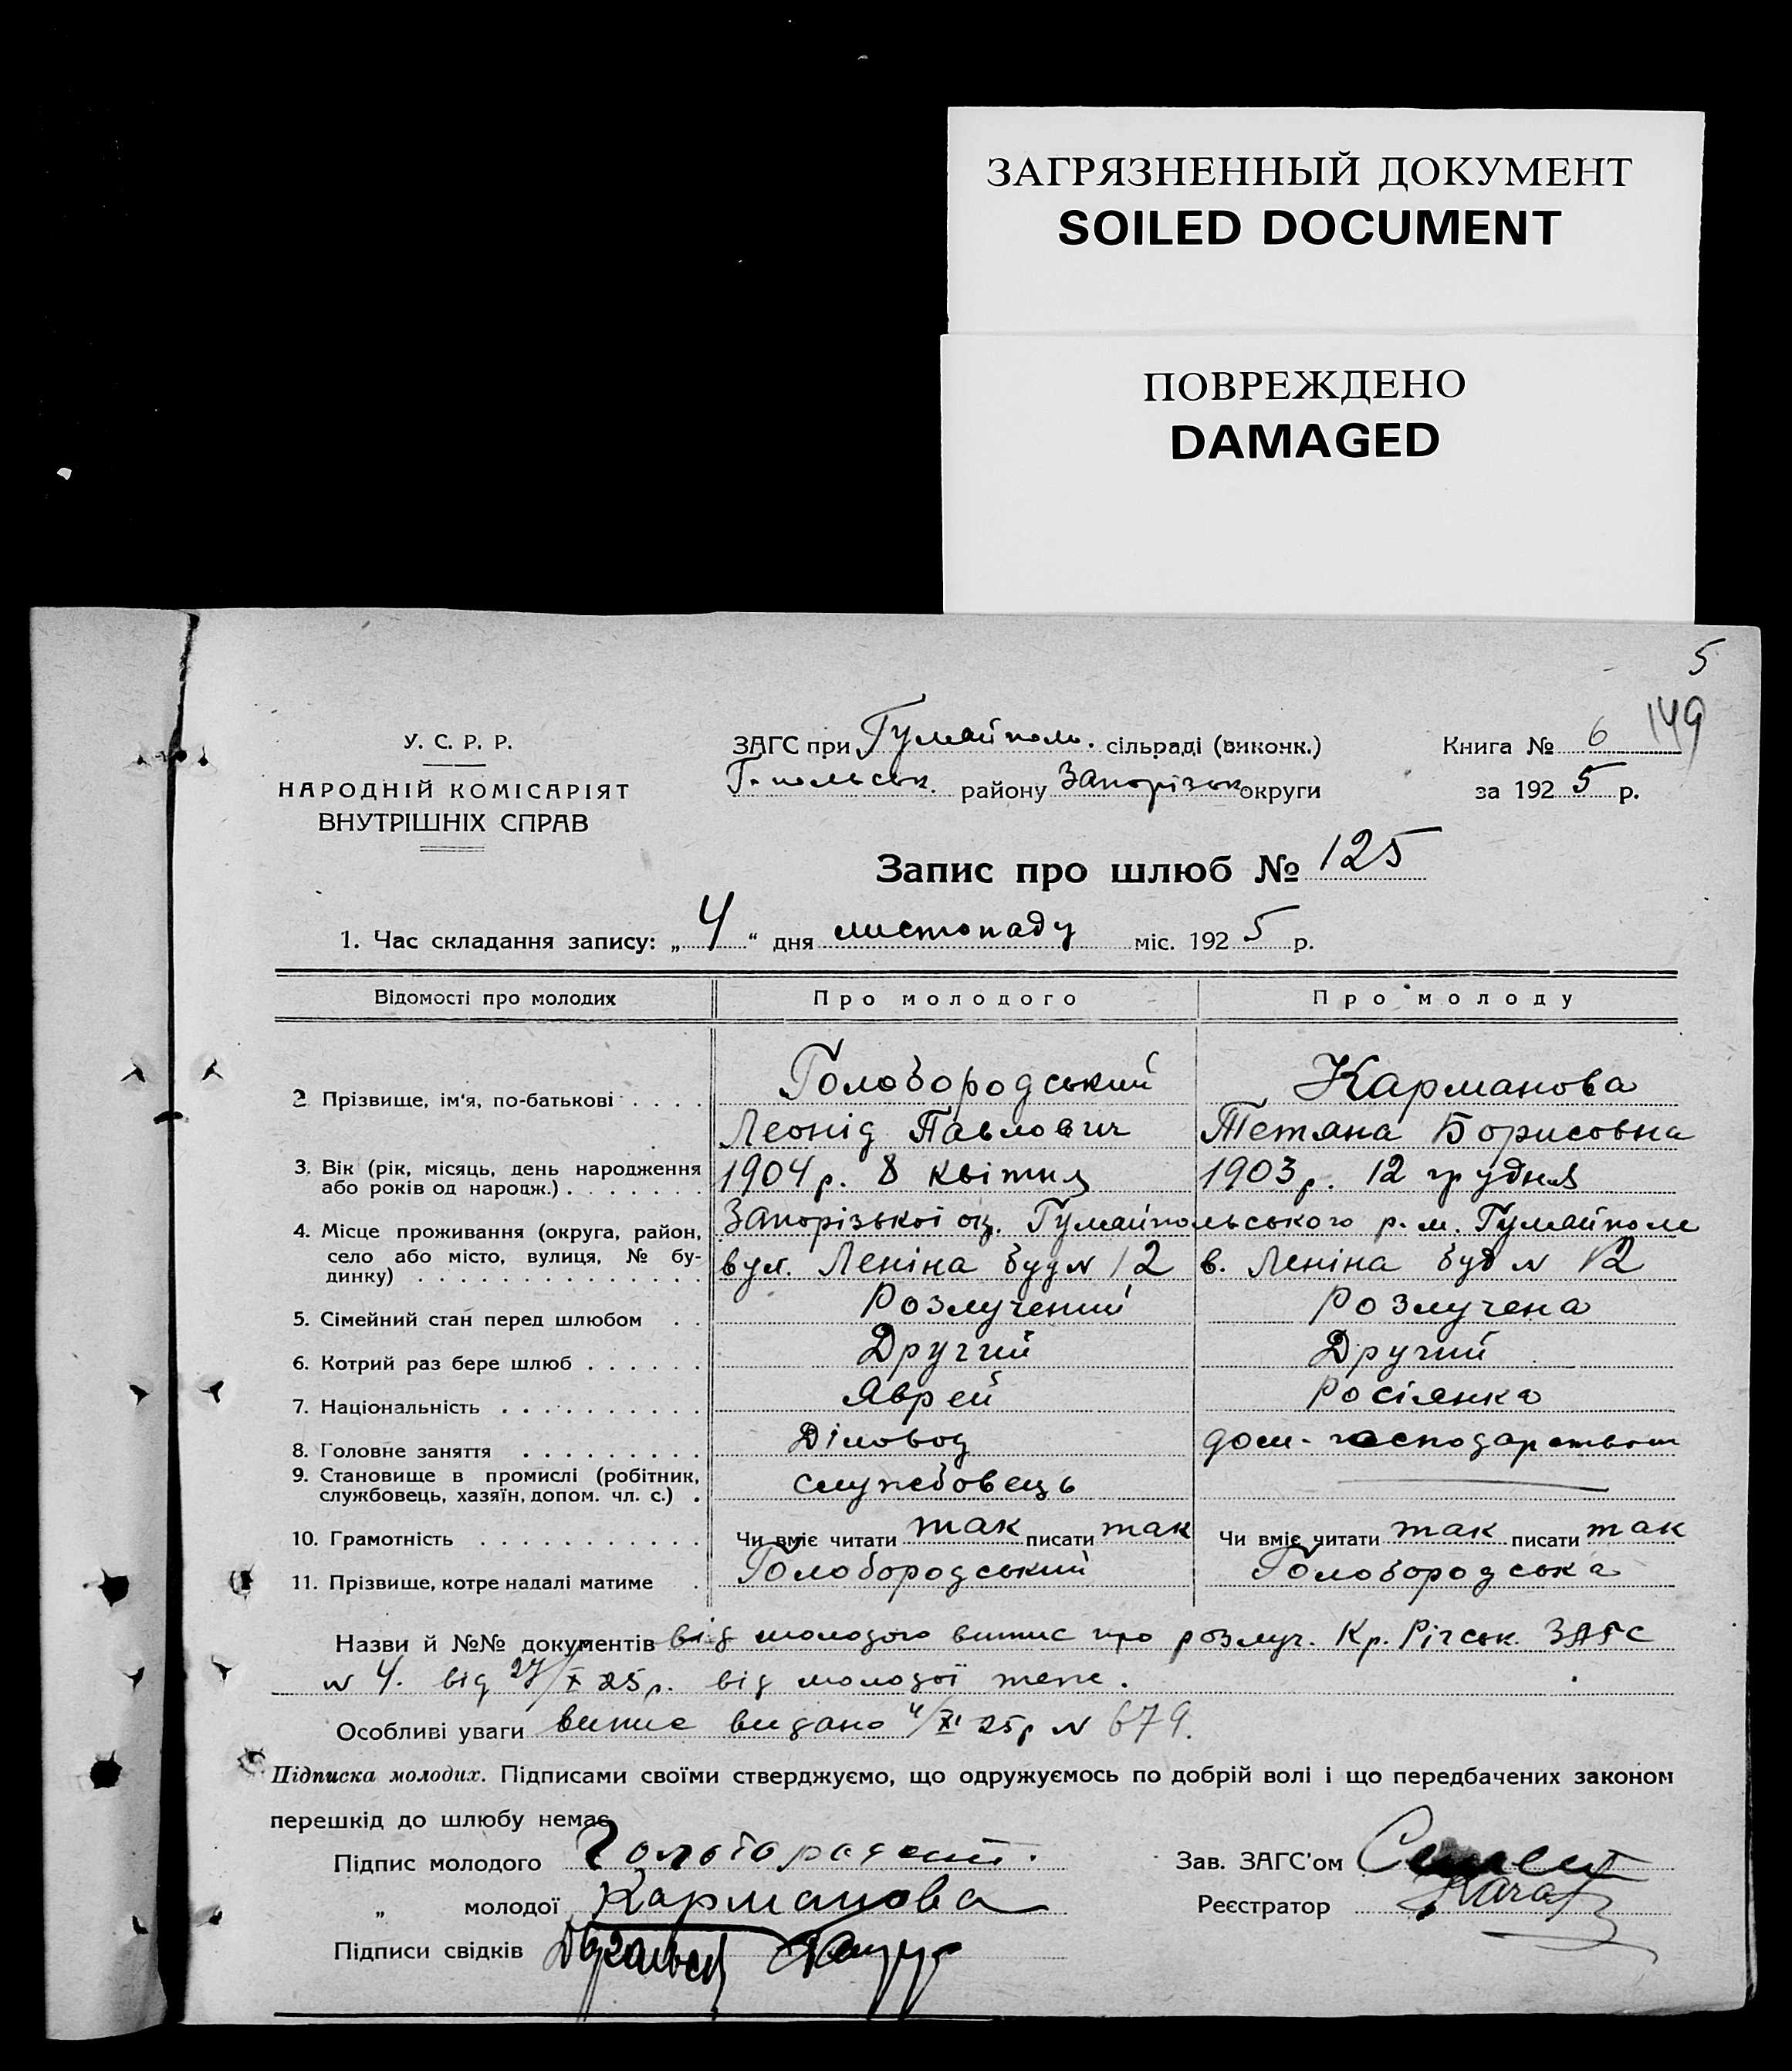 ЗАГРЯЗНЕННЫЙ ДОКУМЕНТ
SOILED DOCUMENT
ПОВРЕЖДЕНО
DAMAGED
5
149
У. С. Р. Р.
НАРОДНІЙ КОМІСАРІЯТ
ВНУТРІШНІХ СПРАВ
ЗАГС при Гуляйполь. сільраді (виконк.)
Г.польськ. району Запорізьк округи
Книга № 6
за 1925 р.
Запис про шлюб № 125
1. Час складання запису: „4“ дня листопаду міс. 1925 р.
Відомості про молодих Про молодого Про молоду
2 Прізвище, ім'я, по-батькові . . . . Голобородський Карманова
Леонід Павлович Тетяна Борисовна
3. Вік (рік, місяць, день народження 1904 р. 8 квітня 1903 р. 12 грудня
або років од народж.) . . . . . . .
4. Місце проживання (округа, район, Запорізької ок. Гуляйпольського р. м. Гуляйполе
село або місто, вулиця, № бу-
динку) . . . . . . . . . . . . . . вул. Леніна буд N 12 в. Леніна буд N 12
5. Сімейний стан перед шлюбом . . Розлучений Розлучена
6. Котрий раз бере шлюб . . . . . . Другий Другий
7. Національність . . . . . . . . . . Яврей Росіянка
8. Головне заняття . . . . . . . . . Діловод дом. господарством
9. Становище в промислі (робітник, службовець
службовець, хазяїн, допом. чл. с.) .
10. Грамотність . . . . . . . . . . . Чи вміє читати так писати так Чи вміє читати так писати так
11. Прізвище, котре надалі матиме . Голобородський Голобородська
Назви й №№ документів від молодого витис про розлуч. Кр. Річськ. ЗАГС
N 4. від 27/X 25 р. від молодої теже.
Особливі уваги витис видано 4/XI 25 р N 679.
Підписка молодих. Підписами своїми стверджуємо, що одружуємось по добрій волі і що передбачених законом
перешкід до шлюбу немає.
Підпис молодого Голобородский. Зав. ЗАГС'ом
„ молодої Карманова Реєстратор
Підписи свідків